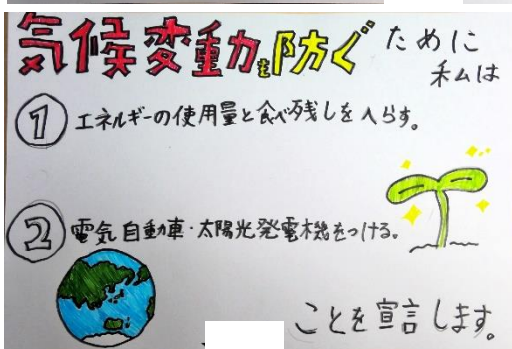 気候変動を防ぐために
私は
① エネルギーの使用量と食べ残しをへらす。
② 電気自動車・太陽光発電機をつける。
ことを宣言します。